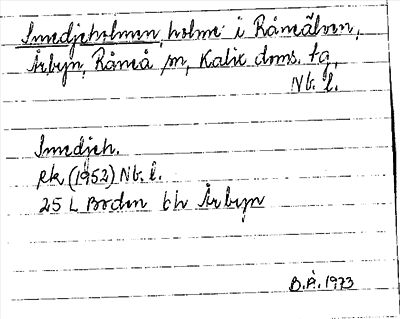 Smedjeholmen, holme i Råneälven,
Årbyn, Råneå sn, Kalix doms. tg,
Nb. l.
Smedjeh.
ek (1952) Nb. l.
25 L Boden bh Årbyn
B.Å. 1973